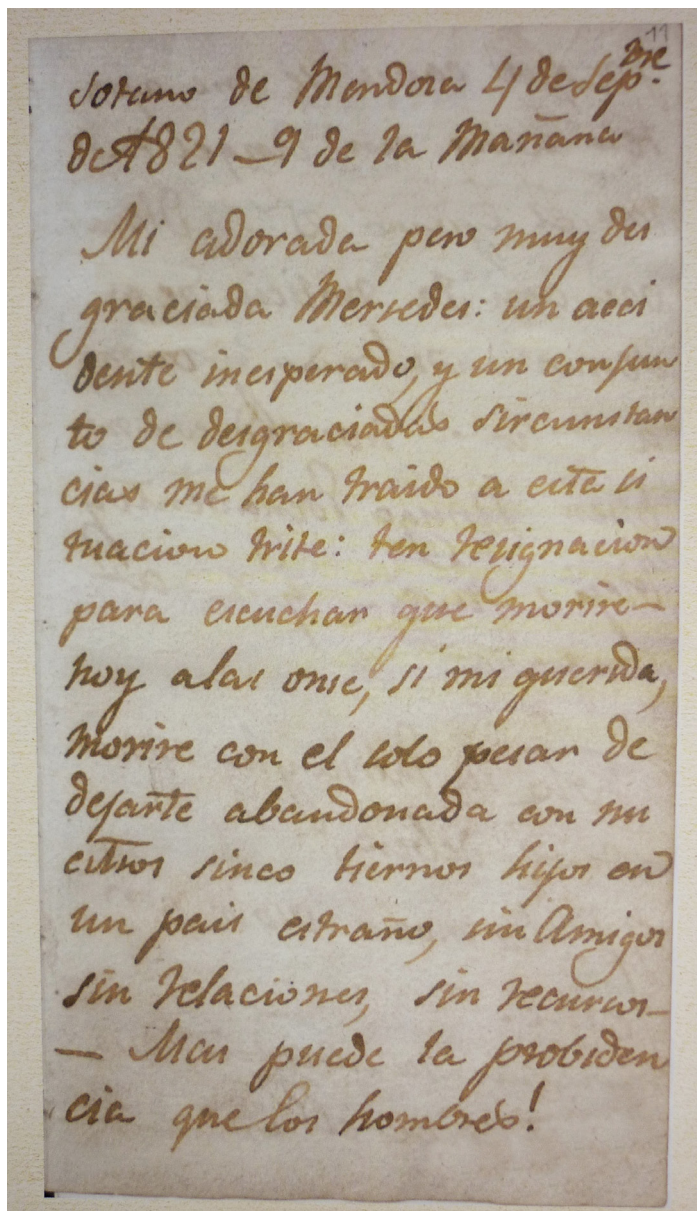 11
Sotano de Mendosa 4 de Sepbre.
de 1821 – 9 de la Mañana
Mi adorada pero muy des
graciada Mersedes: un acci
dente inesperado, y un conjun
to de desgraciadas sircunstan
cias me han traido a esta si
tuacion triste: ten resignacion
para escuchar que morire –
hoy a las onse, si mi querida,
morire con el solo pesar de
dejarte abandonada con nu
estros sinco tiernos hijos en
un pais estraño, sin Amigos
sin relaciones, sin recursos –
– Mas puede la probiden
cia que los hombres!